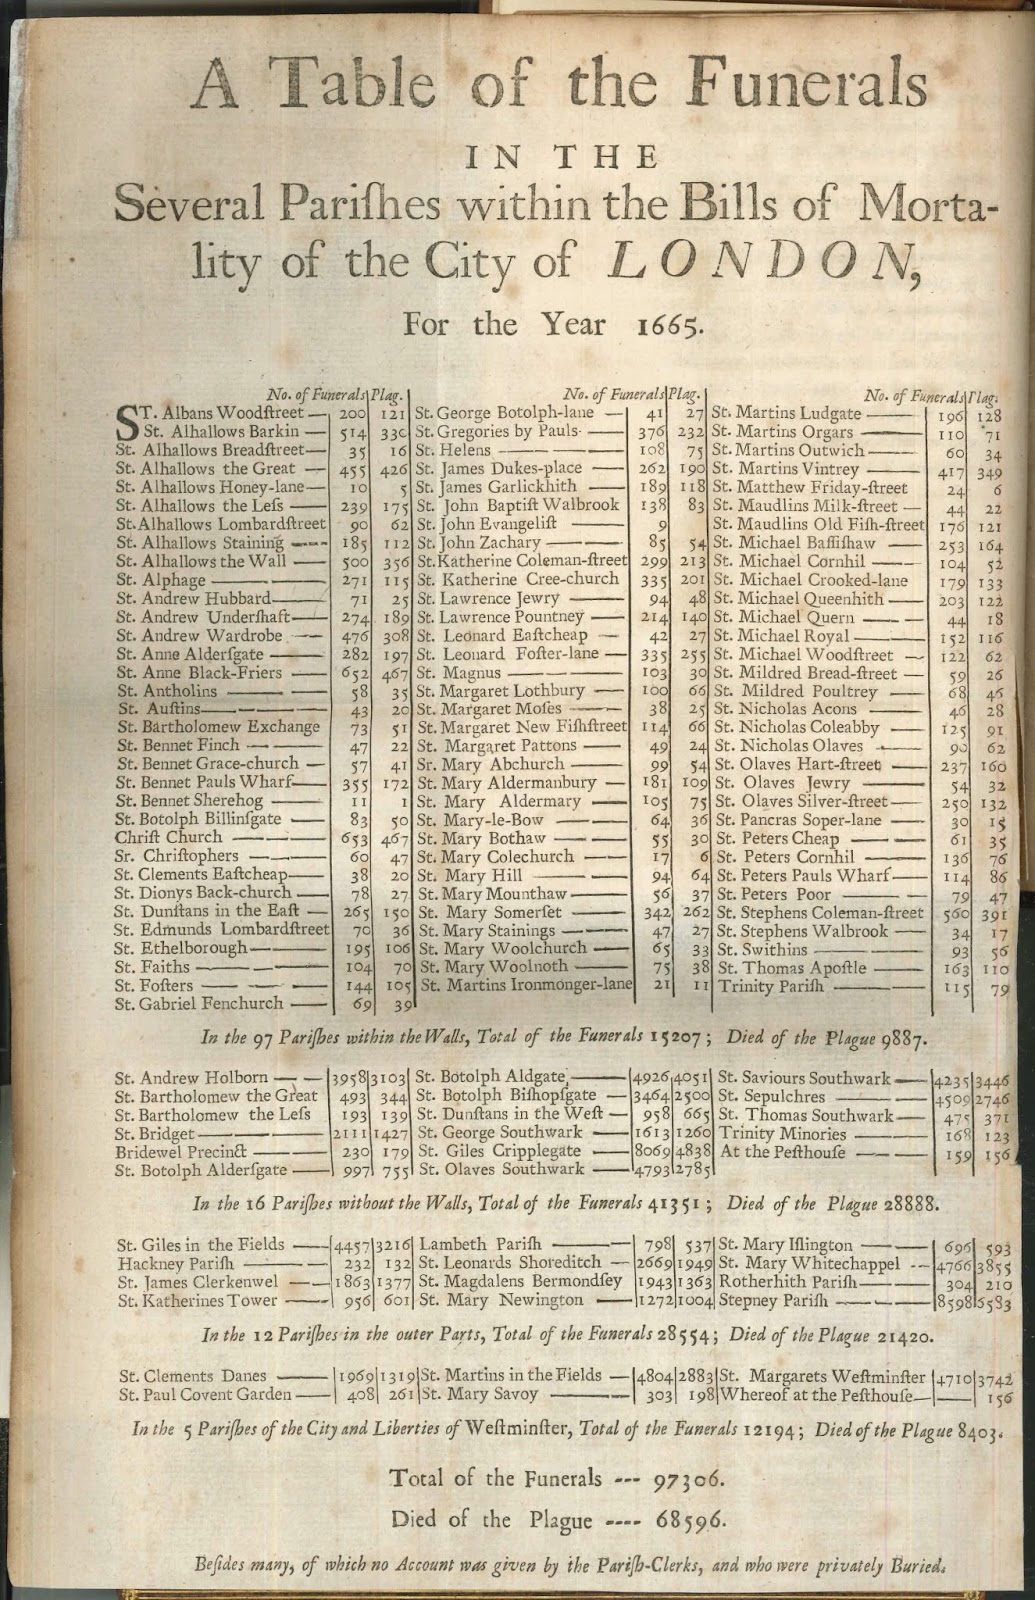 A Table of the Funerals
IN THE
Several Pariſhes within the Bills of Morta-
lity of the City of LONDON,
For the Year 1665.
No. of Funerals Plag.
ST. Albans Woodſtreet — 200 121
St. Alhallows Barkin — 514 330
St. Alhallows Breadſtreet — 35 16
St. Alhallows the Great — 455 426
St. Alhallows Honey-lane — 10 5
St. Alhallows the Leſs — 239 175
St. Alhallows Lombardſtreet 90 62
St. Alhallows Staining — 185 112
St. Alhallows the Wall — 500 356
St. Alphage — 271 115
St. Andrew Hubbard — 71 25
St. Andrew Underſhaft — 274 189
St. Andrew Wardrobe — 476 308
St. Anne Alderſgate — 282 197
St. Anne Black-Friers — 652 467
St. Antholins — 58 35
St. Auſtins — 43 20
St. Bartholomew Exchange 73 51
St. Bennet Finch — 47 22
St. Bennet Grace-church — 57 41
St. Bennet Pauls Wharf — 355 172
St. Bennet Sherehog — 11 1
St. Botolph Billinſgate — 83 50
Chriſt Church — 653 467
Sr. Chriſtophers — 60 47
St. Clements Eaſtcheap — 38 20
St. Dionys Back-church — 78 27
St. Dunſtans in the Eaſt — 265 150
St. Edmunds Lombardſtreet 70 36
St. Ethelborough — 195 106
St. Faiths — 104 70
St. Foſters — 144 105
St. Gabriel Fenchurch — 69 39
No. of Funerals Plag.
St. George Botolph-lane — 41 27
St. Gregories by Pauls — 376 232
St. Helens — 108 75
St. James Dukes-place — 262 190
St. James Garlickhith — 189 118
St. John Baptiſt Walbrook 138 83
St. John Evangeliſt — 9
St. John Zachary — 85 54
St. Katherine Coleman-ſtreet 299 213
St. Katherine Cree-church 335 201
St. Lawrence Jewry — 94 48
St. Lawrence Pountney — 214 140
St. Leonard Eaſtcheap — 42 27
St. Leonard Foſter-lane — 335 255
St. Magnus — 103 30
St. Margaret Lothbury — 100 66
St. Margaret Moſes — 38 25
St. Margaret New Fiſhſtreet 114 66
St. Margaret Pattons — 49 24
Sr. Mary Abchurch — 99 54
St. Mary Aldermanbury — 181 109
St. Mary Aldermary — 105 75
St. Mary-le-Bow — 64 36
St. Mary Bothaw — 55 30
St. Mary Colechurch — 17 6
St. Mary Hill — 94 64
St. Mary Mounthaw — 56 37
St. Mary Somerſet — 342 262
St. Mary Stainings — 47 27
St. Mary Woolchurch — 65 33
St. Mary Woolnoth — 75 38
St. Martins Ironmonger-lane 21 11
No. of Funerals Plag.
St. Martins Ludgate — 196 128
St. Martins Orgars — 110 71
St. Martins Outwich — 60 34
St. Martins Vintrey — 417 349
St. Matthew Friday-ſtreet 24 6
St. Maudlins Milk-ſtreet — 44 22
St. Maudlins Old Fiſh-ſtreet 176 121
St. Michael Baſſiſhaw — 253 164
St. Michael Cornhil — 104 52
St. Michael Crooked-lane 179 133
St. Michael Queenhith — 203 122
St. Michael Quern — 44 18
St. Michael Royal — 152 116
St. Michael Woodſtreet — 122 62
St. Mildred Bread-ſtreet — 59 26
St. Mildred Poultrey — 68 46
St. Nicholas Acons — 46 28
St. Nicholas Coleabby — 125 91
St. Nicholas Olaves — 90 62
St. Olaves Hart-ſtreet — 237 160
St. Olaves Jewry — 54 32
St. Olaves Silver-ſtreet — 250 132
St. Pancras Soper-lane — 30 15
St. Peters Cheap — 61 35
St. Peters Cornhil — 136 76
St. Peters Pauls Wharf — 114 86
St. Peters Poor — 79 47
St. Stephens Coleman-ſtreet 560 391
St. Stephens Walbrook — 34 17
St. Swithins — 93 56
St. Thomas Apoſtle — 163 110
Trinity Pariſh — 115 79
In the 97 Pariſhes within the Walls, Total of the Funerals 15207; Died of the Plague 9887.
St. Andrew Holborn — 3958 3103
St. Bartholomew the Great 493 344
St. Bartholomew the Leſs 193 139
St. Bridget — 2111 1427
Bridewel Precinct — 230 179
St. Botolph Alderſgate — 997 755
St. Botolph Aldgate, — 4926 4051
St. Botolph Biſhopſgate — 3464 2500
St. Dunſtans in the Weſt — 958 665
St. George Southwark — 1613 1260
St. Giles Cripplegate — 8069 4838
St. Olaves Southwark — 4793 2785
St. Saviours Southwark — 4235 3446
St. Sepulchres — 4509 2746
St. Thomas Southwark — 475 371
Trinity Minories — 168 123
At the Peſthouſe — 159 156
In the 16 Pariſhes without the Walls, Total of the Funerals 41351; Died of the Plague 28888.
St. Giles in the Fields — 4457 3216
Hackney Pariſh — 232 132
St. James Clerkenwel — 1863 1377
St. Katherines Tower — 956 601
Lambeth Pariſh — 798 537
St. Leonards Shoreditch — 2669 1949
St. Magdalens Bermondſey 1943 1363
St. Mary Newington — 1272 1004
St. Mary Iſlington — 696 593
St. Mary Whitechappel -- 4766 3855
Rotherhith Pariſh — 304 210
Stepney Pariſh — 8598 6583
In the 12 Pariſhes in the outer Parts, Total of the Funerals 28554; Died of the Plague 21420.
St. Clements Danes — 1969 1319
St. Paul Covent Garden — 408 261
St. Martins in the Fields — 4804 2883
St. Mary Savoy — 303 198
St. Margarets Weſtminſter 4710 3742
Whereof at the Peſthouſe — — 156
In the 5 Pariſhes of the City and Liberties of Weſtminſter, Total of the Funerals 12194; Died of the Plague 8403.
Total of the Funerals --- 97306.
Died of the Plague ---- 68596.
Beſides many, of which no Account was given by the Pariſh-Clerks, and who were privately Buried.